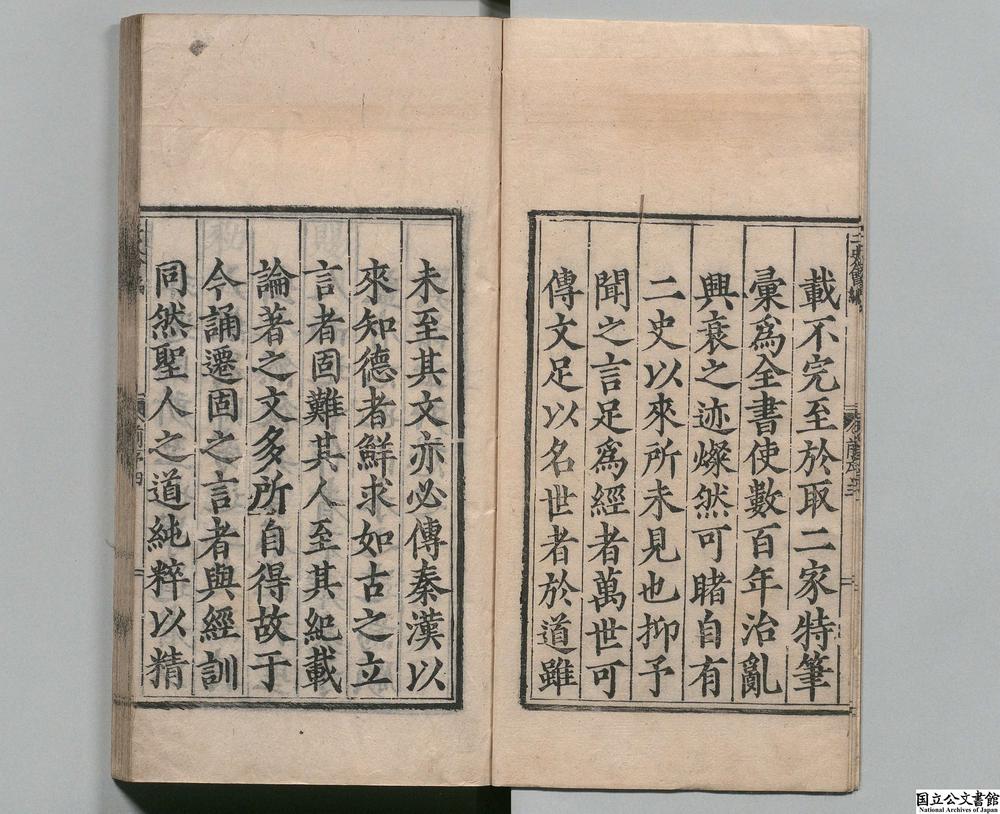 載不完至於取二家特筆
彙為全書使數百年治亂
興衰之迹燦然可睹自有
二史以來所未見也抑予
聞之言足為經者萬世可
傳文足以名世者於道雖
未至其文亦必傳秦漢以
來知德者鮮求如古之立
言者固難其人至其紀載
論著之文多所自得故于
今誦遷固之言者與經訓
同然聖人之道純粹以精
国立公文書館
National Archives of Japan